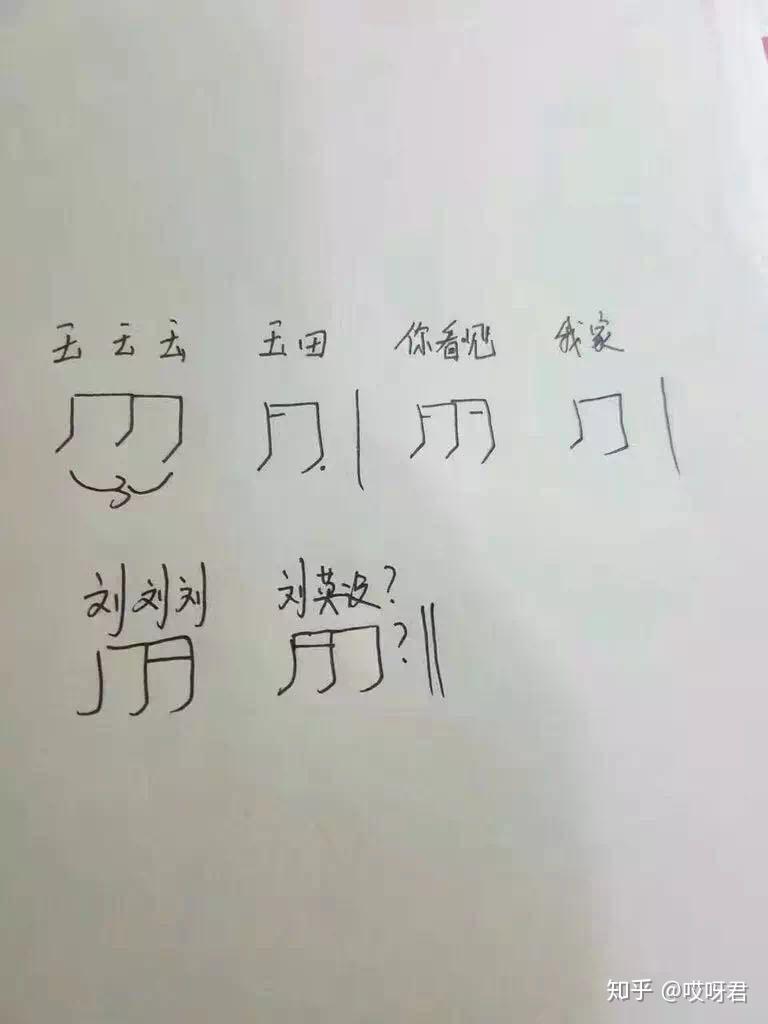 玉 玉 玉 玉田 你看见 我家
3
刘刘刘 刘英没?
?
知乎 @哎呀君